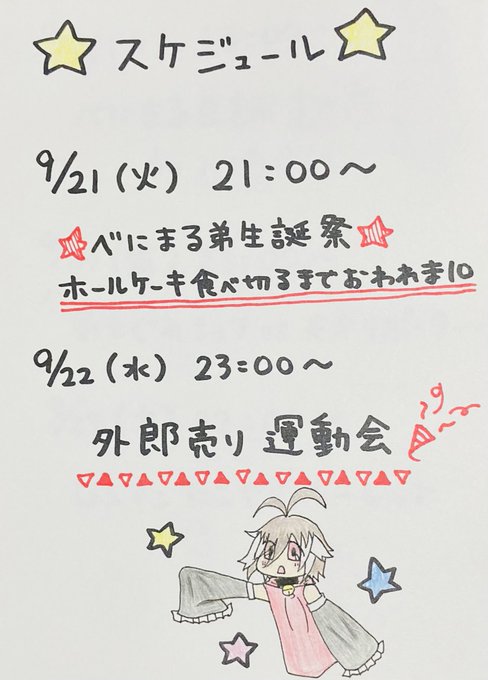 スケジュール
9/21(火) 21:00~
べにまる弟生誕祭
ホールケーキ食べ切るまでおわれま10
9/22(水) 23:00~
外郎売り 運動会